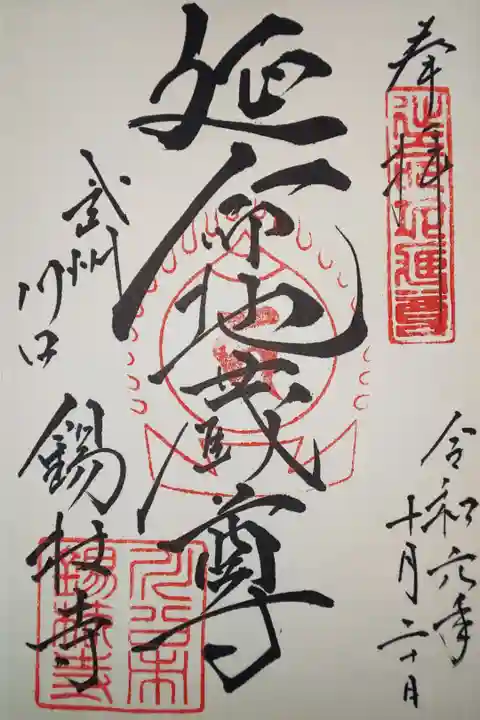 奉拝
令和六年
十月二十日
延命地蔵尊
武州
川口
錫杖寺